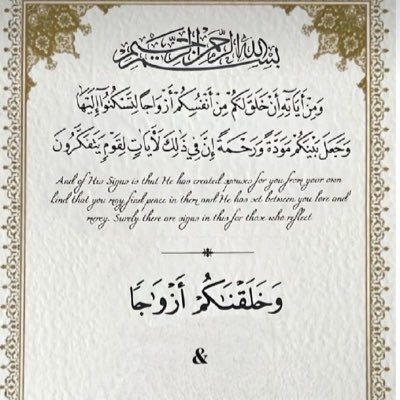 بسم الله الرحمن الرحيم
وَمِنْ أَيَاتِهِ أَنْ خَلَقَ لَكُمْ مِنْ أَنْفُسِكُمْ أَزْوَاجًا لِتَسْكُنُوا إِلَيْهَا
وَجَعَلَ بَيْنَكُمْ مَوَدَّةً وَرَحْمَةً إِنَّ فِي ذَلِكَ لَآيَاتٍ لِقَوْمٍ يَتَفَكَّرُونَ
And of His Signs is that He has created spouses for you from your own
kind that you may find peace in them and He has set between you love and
mercy. Surely there are signs in this for those who reflect
وَخَلَقْنَاكُمْ أَزْوَاجًا
&